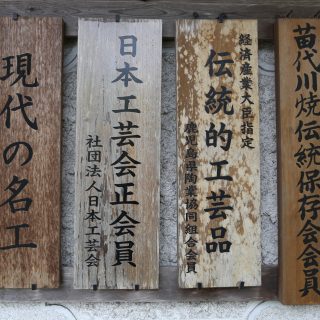 苗代川焼伝統保存会会員
経済産業大臣指定
伝統的工芸品
鹿児島県陶業協同組合会員
日本工芸会正会員
社団法人日本工芸会
現代の名工